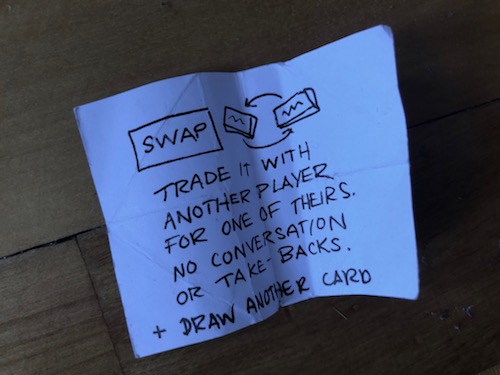 SWAP
TRADE IT WITH
ANOTHER PLAYER
FOR ONE OF THEIRS.
NO CONVERSATION
OR TAKE-BACKS.
+ DRAW ANOTHER CARD